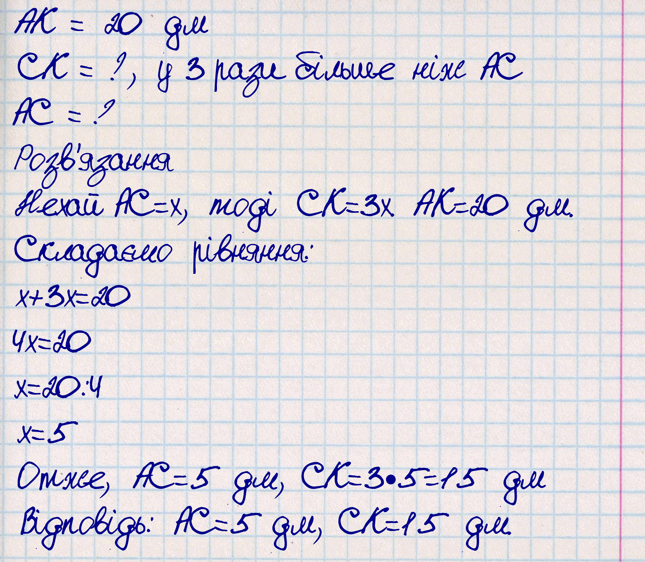 AK = 20 дм
CK = ?, у 3 рази більше ніж AC
AC = ?
Розв'язання
Нехай AC=x, тоді CK=3x. AK=20 дм.
Складаємо рівняння:
x+3x=20
4x=20
x=20:4
x=5
Отже, AC=5 дм, CK=3•5=15 дм
Відповідь: AC=5 дм, CK=15 дм.